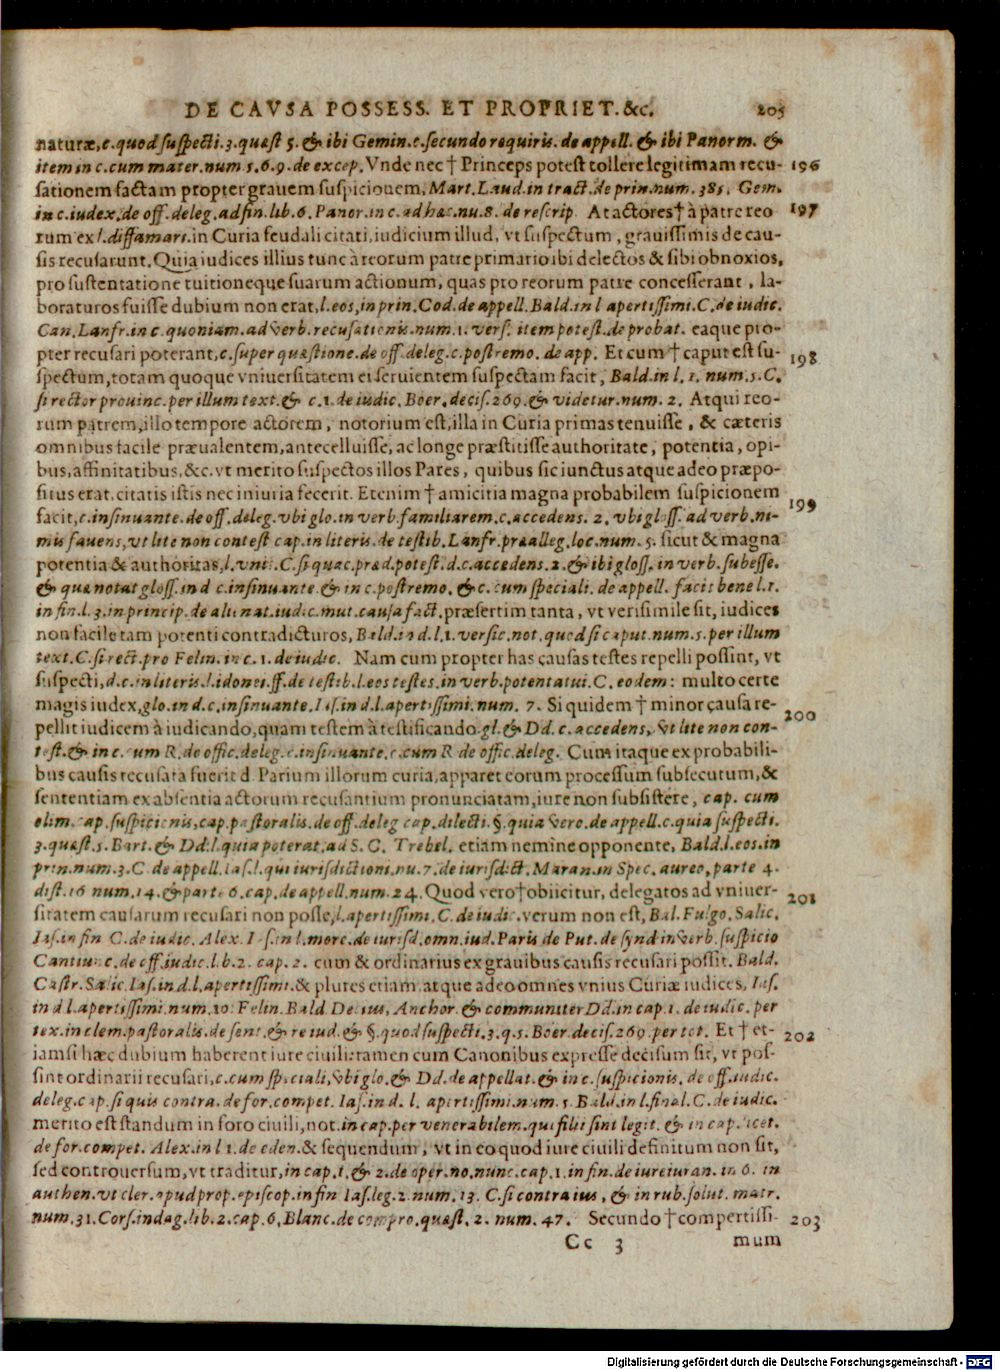 DE CAVSA POSSESS. ET PROPRIET. &c. 205
naturæ, c. quod suspecti. 3. quæst 5. & ibi Gemin. c. secundo requiris. de appell. & ibi Panorm. &
item in c. cum mater. num 5. 6. 9. de excep. Vnde nec † Princeps potest tollere legitimam recu- 196
sationem factam propter grauem suspicionem, Mart. Laud. in tract. de prin. num. 385. Gem.
in c. iudex, de off. deleg. ad fin. lib. 6. Panor. in c. ad hæc. nu. 8. de rescrip. At actores † à patre reo 197
rum ex l. diffamari. in Curia feudali citati, iudicium illud, vt suspectum, grauissimis de cau-
sis recusarunt. Quia iudices illius tunc à reorum patre primario ibi delectos & sibi obnoxios,
pro sustentatione tuitioneque suarum actionum, quas pro reorum patre concesserant, la-
boraturos fuisse dubium non erat, l. eos, in prin. Cod. de appell. Bald. in l apertissimi. C. de iudic.
Can. Lanfr. in c. quoniam. ad verb. recusationis. num. 1. vers. item potest. de probat. eaque pro-
pter recusari poterant, c. super quæstione. de off. deleg. c. postremo. de app. Et cum † caput est su- 198
spectum, totam quoque vniuersitatem ei seruientem suspectam facit, Bald. in l. 1. num. 5. C.
si rector prouinc. per illum text. & c. 1. de iudic. Boer. decis. 269. & videtur. num. 2. Atqui reo-
rum patrem, illo tempore actorem, notorium est, illa in Curia primas tenuisse, & cæteris
omnibus facile præualentem, antecelluisse, ac longe præstitisse authoritate, potentia, opi-
bus, affinitatibus, &c. vt merito suspectos illos Pares, quibus sic iunctus atque adeo præpo-
situs erat, citatis istis nec iniuria fecerit. Etenim † amicitia magna probabilem suspicionem 199
facit, c. insinuante. de off. deleg. vbi glo. in verb. familiarem. c. accedens. 2. vbi gloss. ad verb. ni-
mis fauens, vt lite non contest cap. in literis. de testib. Lanfr. præalleg. loc. num. 5. sicut & magna
potentia & authoritas, l. vnic. C. si quac. præd. potest. d. c. accedens. 2. & ibi gloss. in verb. subesse.
& quæ notat gloss. in d c. insinuante. & in c. postremo. & c. cum speciali. de appell. facit bene l. 1.
in fin. l. 3. in princip. de alienat. iudic. mut. causa fact. præsertim tanta, vt verisimile sit, iudices
non facile tam potenti contradicturos, Bald. in d. l. 1. versic. not. quod si caput. num. 5. per illum
text. C. si rect. pro Felin. in c. 1. de iudic. Nam cum propter has causas testes repelli possint, vt
suspecti, d. c. in literis. l. idonei. ff. de testib. l. eos testes. in verb. potentatui. C. eodem: multo certe
magis iudex, glo. in d. c. insinuante. Ias. in d. l. apertissimi. num. 7. Si quidem † minor causa re-
pellit iudicem à iudicando, quam testem à testificando. gl. & Dd. c. accedens, vt lite non con- 200
test. & in c. cum R. de offic. deleg. c. insinuante. c. cum R de offic. deleg. Cum itaque ex probabili-
bus causis recusata fuerit d. Parium illorum curia, apparet eorum processum subsecutum, &
sententiam ex absentia actorum recusantium pronunciatam, iure non subsistere, cap. cum
olim. cap. suspicionis, cap. pastoralis. de off. deleg cap. dilecti. §. quia vero. de appell. c. quia suspecti.
3. quæst. 5. Bart. & Dd: l. quia poterat. ad S. C. Trebel. etiam nemine opponente, Bald. l. eos. in
prin. num. 3. C. de appell. Ias. l. qui iurisdictioni. nu. 7. de iurisdict. Maran. in Spec. aureo, parte 4.
dist. 16 num. 14. & parte 6. cap. de appell. num. 24. Quod vero † obiicitur, delegatos ad vniuer- 201
sitatem causarum recusari non posse, l. apertissimi. C. de iudic. verum non est, Bal. Fulgo. Salic.
Ias. in fin C. de iudic. Alex. Ias. in l. more. de iurisd. omn. iud. Paris de Put. de synd in verb. suspicio
c. de off. iudic. lib. 2. cap. 2. cum & ordinarius ex grauibus causis recusari possit. Bald.
Castr. Salic. Ias. in d. l. apertissimi. & plures etiam, atque adeo omnes vnius Curiæ iudices, Ias.
in d l. apertissimi. num. 10: Felin. Bald Decius, Anchor. & communiter Dd. in cap 1. de iudic. per
tex. in clem. pastoralis. de sent. & re iud. & §. quod suspecti. 3. q. 5. Boer. decis. 269. per tot. Et † et- 202
iamsi hæc dubium haberent iure ciuili: tamen cum Canonibus expresse decisum sit, vt pos-
sint ordinarii recusari, c. cum speciali, vbi glo. & Dd. de appellat. & in c. suspicionis. de off. iudic.
deleg. cap. si quis contra. de for. compet. Ias. in d. l. apertissimi. num. 5. Bald. in l. final. C. de iudic.
merito est standum in foro ciuili, not. in cap. per venerabilem. qui filii sint legit. & in cap. licet.
de for. compet. Alex. in l 1. de eden. & sequendum, vt in eo quod iure ciuili definitum non sit,
sed controuersum, vt traditur, in cap. 1. & 2. de oper. no. nunc. cap. 1. in fin. de iureiuran. in 6. in
authen. vt cler. apud prop. episcop. in fin Ias. leg. 2. num. 13. C. si contra ius, & in rub. solut. matr.
num. 31. Cors. indag. lib. 2. cap. 6. Blanc. de compro. quæst. 2. num. 47. Secundo † compertissi- 203
Cc 3 mum
Digitalisierung gefördert durch die Deutsche Forschungsgemeinschaft - DFG